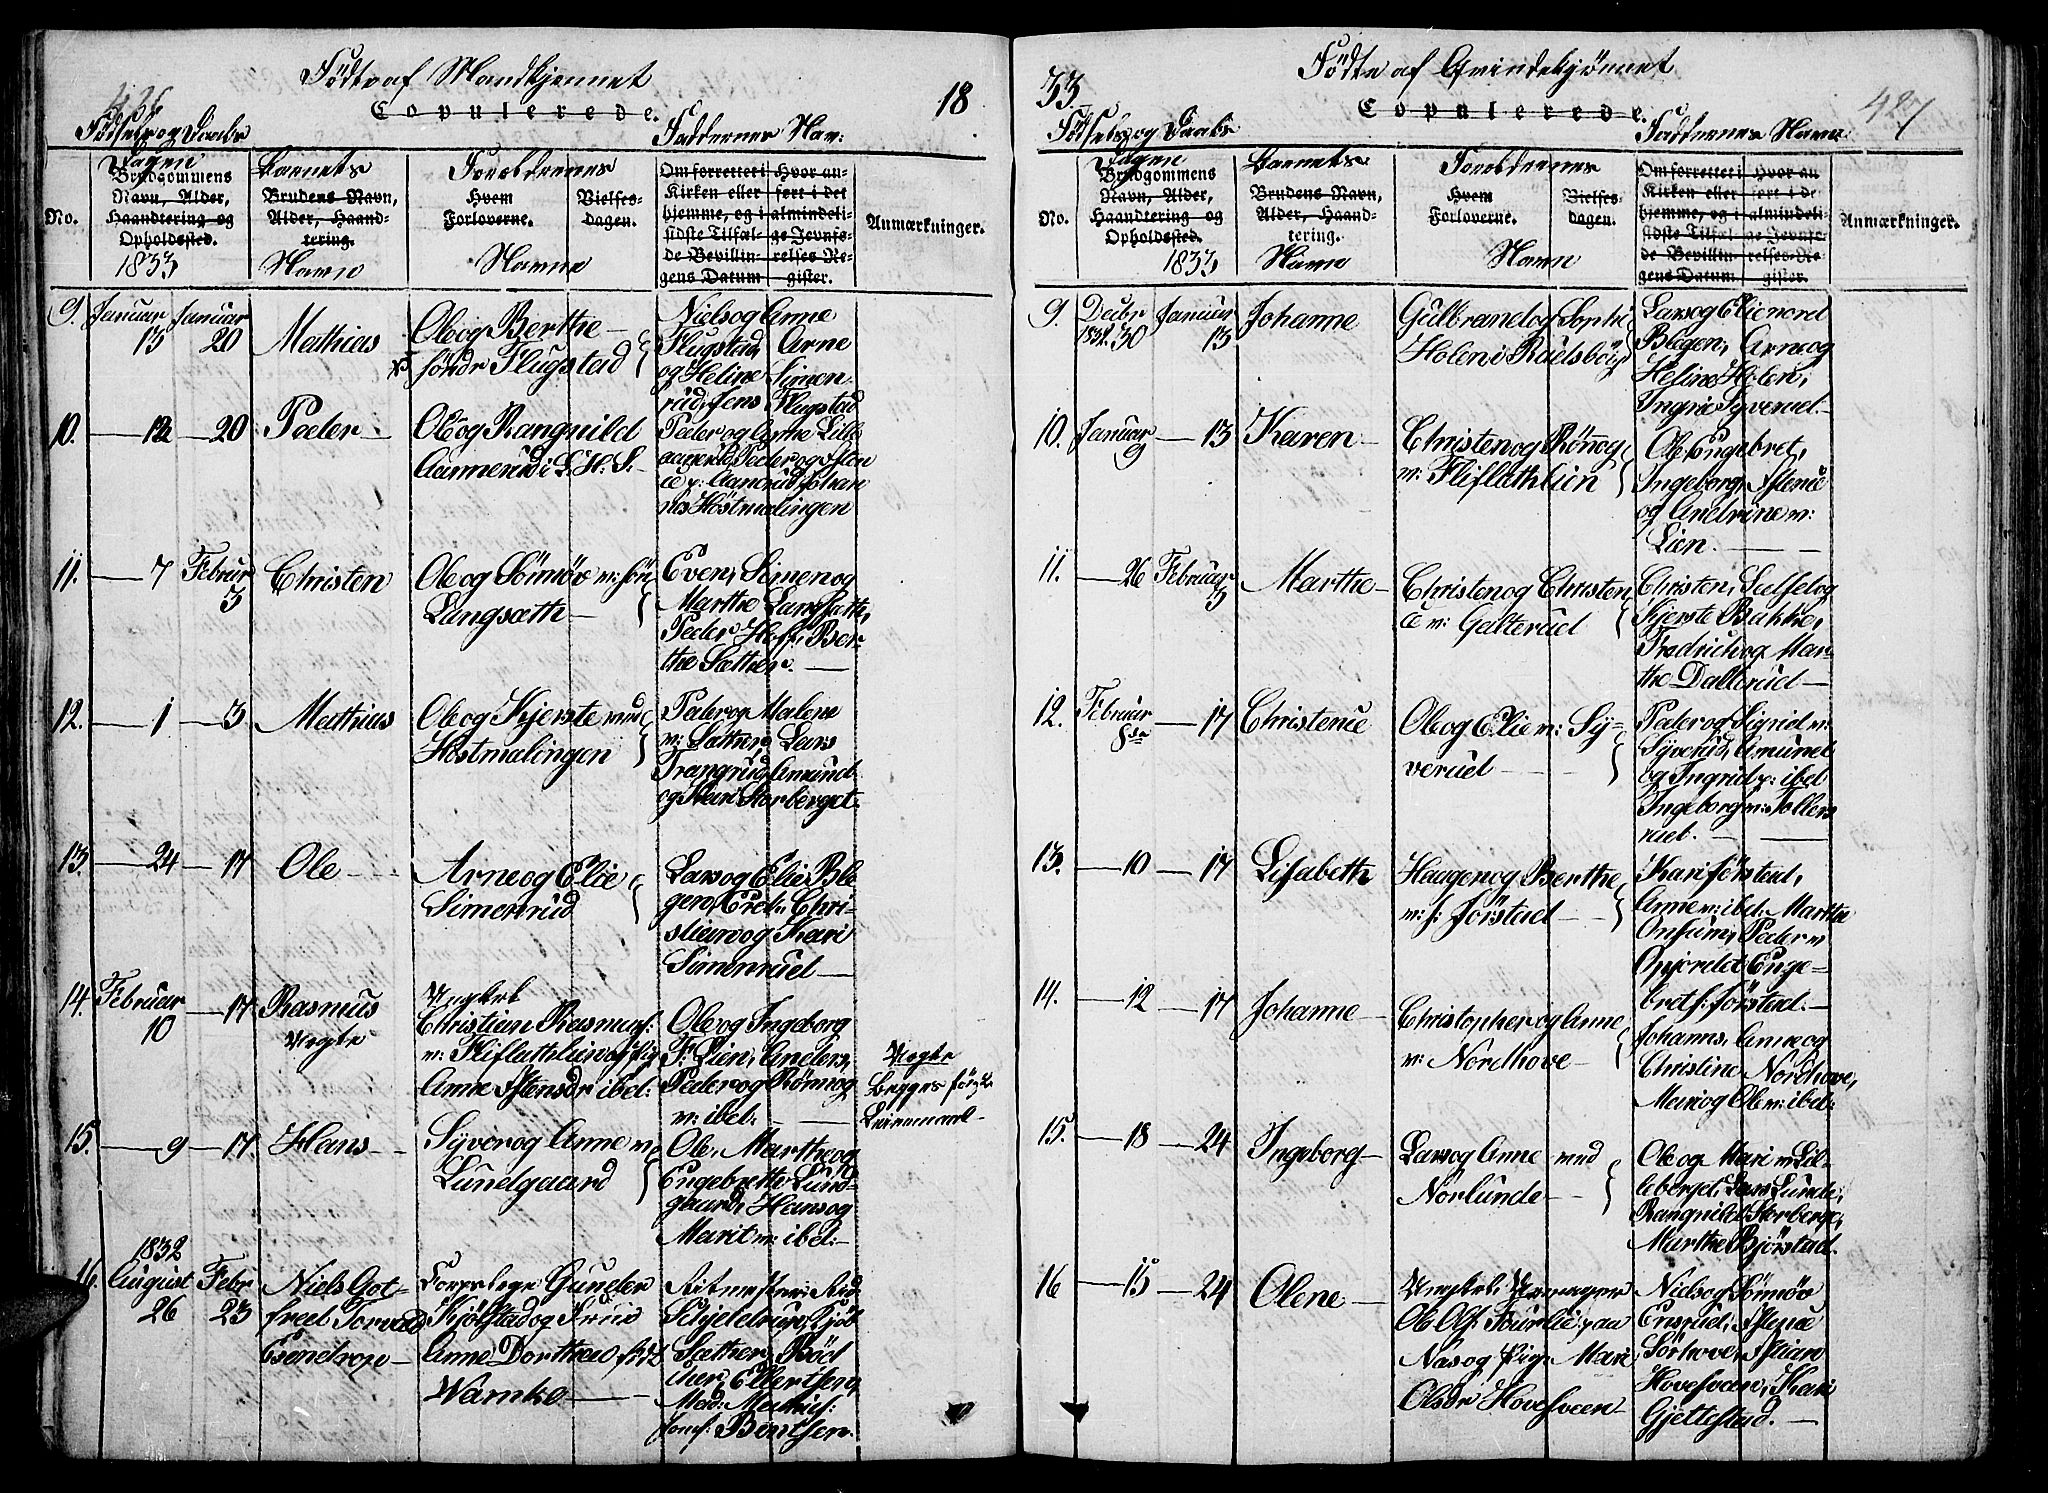 426
Fødte af Mandkjønnet
18
Copulerede.
Fødsels og Daabs
Faddernes Nav:
Dagen
Barnets
Forældrenes
No.
Brudgommens Navn, Alder, Haandtering og Opholdssted.
Brudens Navn, Alder, Haandtering.
Hvem Forloverne.
Vielses-dagen.
Om forrettet i Kirken eller hjemme, og i sidste Tilfælde Bevillingens Datum
Hvor anført i det almindelige Jevnførelses-Register.
Anmærkninger.
1833
Navn
Navne
9. Januar 13 Januar 20
Mathias
Ole og Berthe
søndr Flugstad
Niels og Anne
Flugstad, Arne
og Heline Simen
rud, Jens Flugstad
10. — 12 — 20
Peder
Ole og Rangnild
Aamerud i L. H. S.
Peder og Anne Lille
Peder og
nis Høstmælingen
11. — 7 Februar 3
Christen
Ole og Sønnøv m: søn
Langsæth
Even, Simen og
Marthe Langsæth,
Peder Hof, Ber-
the Sæther.
12. — 1 — 3
Mathias
Ole og Kjerste
Høstmælingen
Peder og Malene
m: Sæther, Lars
Trangrud, Amund
og Kari Storberget
13. — 24 — 17
Ole
Arne og Elie
Simenrud
Lars og Elie Ble
gen, Chri-
stian og Kari
Simenrud
14. Februar 10 — 17
Rasmus
Uægte
Ungkarl
Christian Rasmuss:
m: Fliflathlien og Pig:
Anne Istensdr ibd:
Ole og Ingeborg
F: Lien, Anders,
Peder og Rønnog
m: ibd:
Uægte
Begges første
Leiermaal
15. — 9 — 17.
Hans
Syver og Anne m
Lundgaard
Ole, Marthe og
Engebrethe Lund-
gaard, Hans og
Marit m: ibd:
16. 1832 August 26 Febr 23
Niels Got-
fred Torvald
Esendrop
Gunder
Kjølstad og Frue
Anne Dorthea
Warnke
Ritmester
Schjeldrup,
Sæther, Bød
icher, Ellertsen,
Mad:
Bentsen.
33.
Fødte af Qvindekjønnet
427
Copulerede.
Fødsels og Daabs
Faddernes Navne
Dagen
Barnets
Forældrenes
No.
Brudgommens Navn, Alder, Haandtering og Opholdssted.
Brudens Navn, Alder, Haandtering.
Hvem Forloverne.
Vielses-dagen.
Om forrettet i Kirken eller hjemme, og i sidste Tilfælde Bevillingens Datum
Hvor anført i det almindelige Jevnførelses-Register.
Anmærkninger.
1833
Navn
Navn
9. Decbr 1832. 30 Januar 13
Johanne
Gulbrand og Sophi
Holen i
Lars og Elienord
Blegen, Arne og
Heline Holen,
Ingri Syverud.
10. Januar 9 — 13
Karen
Christen og Rønnog
m: Fliflathlien
Ole Engebret,
Ingeborg, Istenie
og Andrine m:
Lien.
11. — 26 Februar 3
Marthe
Christen og Christen
ie m: Galterud
Christen, og
Kjerste Bakke,
Fredrich og Mar-
the Dallerud
12. Februar 8de — 17
Christenie
Ole og Elie m: Sy-
verud
Peder og Sigrid m:
Syverud, Amund
og Ingrid p: ibd
Ingeborg m: Sollers
rud.
13. — 10 — 17
Lisabeth
Haagen og Berthe
m: f: Jørstad
Kari Jørstad,
Anne m: ibd: Marthe
Onsum, Peder m
Opjordet Enge-
bret f: Jørstad.
14. — 12 — 17
Johanne
Christopher og Anne
m: Nordhove
Johannis, Anne og
Christine Nordhove,
Mari og Ole m: ibd:
15. — 18 — 24
Ingeborg
Lars og Anne
Nørlunde
Ole og Mari m Lil-
leberget, Lars Lunde,
Rangnild Storberge,
Marthe Bjørstad.
16 — 15 — 24
Olene
Ungkarl
Ole Ols:
Næs og Pige Mari
Olsdr Hovesveen
Niels og Sønnøv
Ensrud, Istenie
Sørhove, Istian
Hovesveen, Kari
Gjettestad.